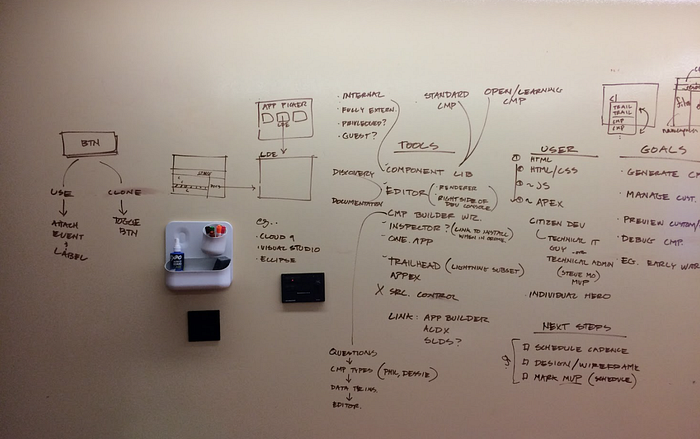 BTN
USE
CLONE
ATTACH
EVENT
&
LABEL
TOGGLE
BTN
APP PICKER
LDE
LDE
eg..
• CLOUD 9
• VISUAL STUDIO
• ECLIPSE
• INTERNAL
• FULLY EXTERN.
• PRIVILEGED?
• GUEST?
STANDARD
CMP
OPEN/LEARNING
CMP
DISCOVERY
DOCUMENTATION
TOOLS
COMPONENT LIB
EDITOR (• RENDERER
RIGHT SIDE OF
DEV CONSOLE)
CMP BUILDER WIZ.
INSPECTOR? (LINK TO INSTALL
WHEN IN
ONE.APP
TRAILHEAD (LIGHTNING SUBSET)
APPEX
X SRC. CONTROL
LINK: APP BUILDER
ALDX
SLDS?
QUESTIONS
CMP TYPES (PHIL, DESSIE)
DATA
EDITOR.
USER
① HTML
② HTML/CSS
③ ~ JS
④ ~ APEX
CITIZEN DEV
TECHNICAL IT
GUY
TECHNICAL ADMIN
(STEVE MO)
MVP
• INDIVIDUAL HERO
NEXT STEPS
□ SCHEDULE CADENCE
□ DESIGN/WIREFRAME
□ MARK MVP (SCHEDULE)
TRAIL
TRAIL
CMP
CMP
GOALS
• GENERATE
• MANAGE CUST.
• PREVIEW CUSTOM/
• DEBUG CMP.
• EG. EARLY